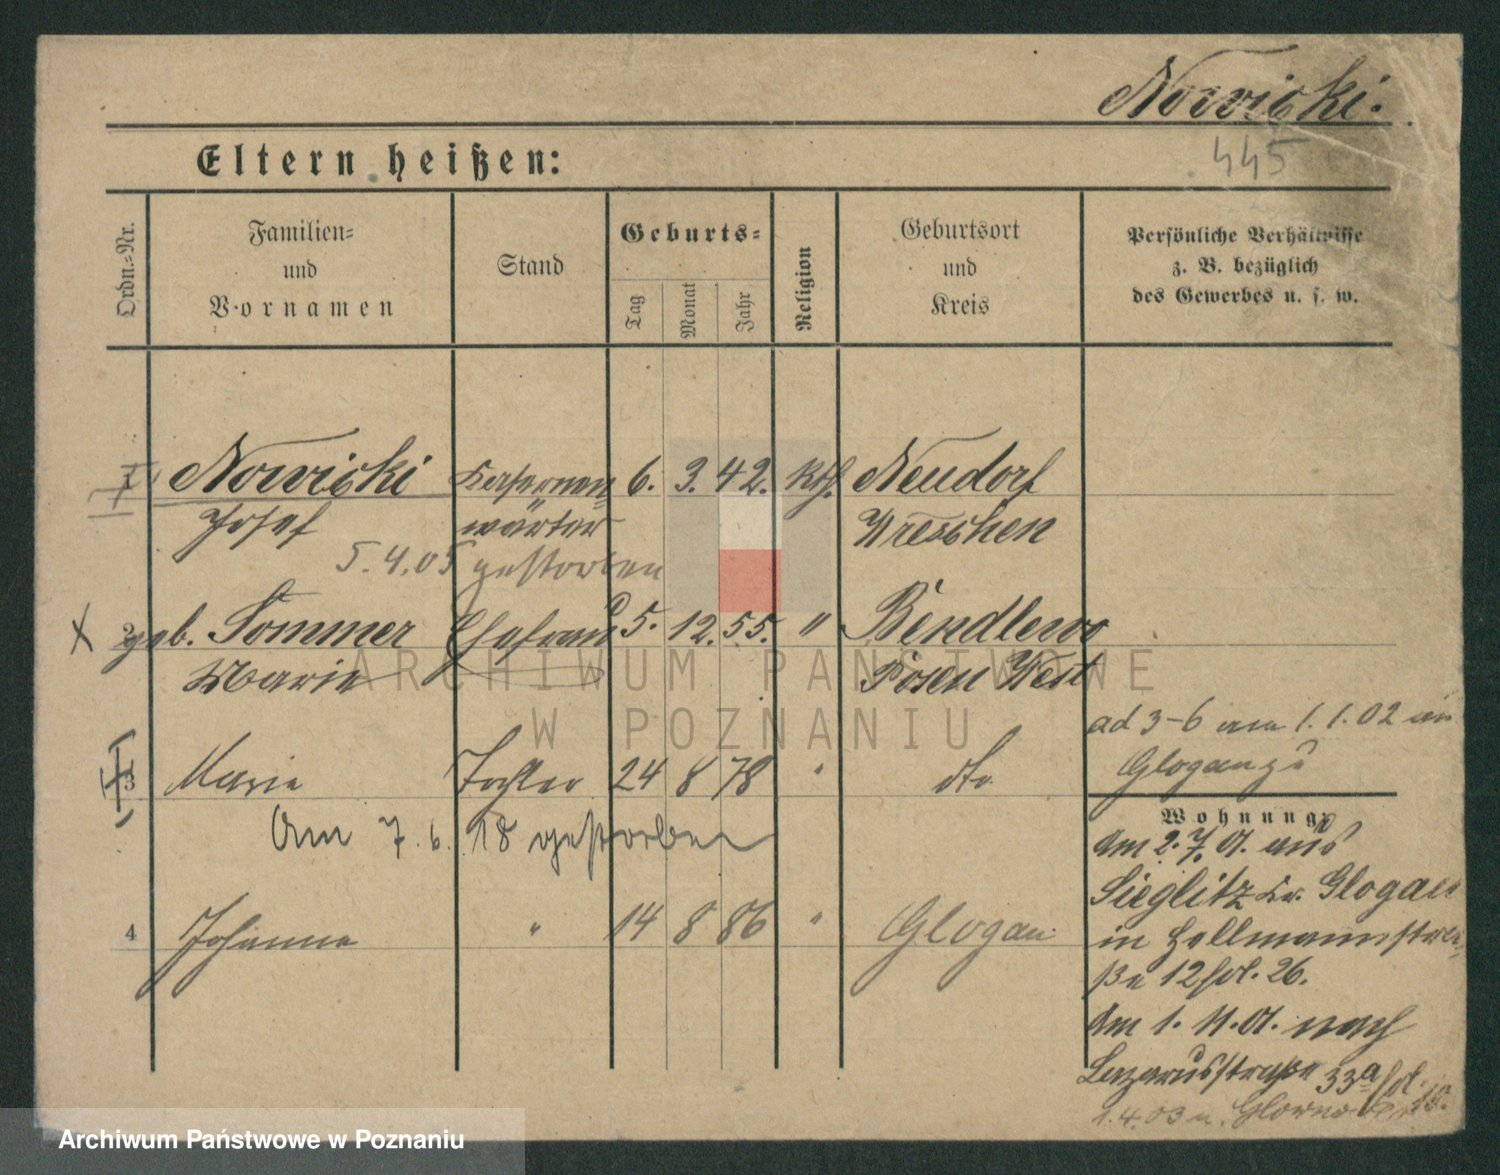 Nowicki.
445
Eltern heißen:
Ordn.-Nr.
Familien-
und
Vornamen
Stand
Geburts-
Tag
Monat
Jahr
Religion
Geburtsort
und
Kreis
Persönliche Verhältnisse
z. B. bezüglich
des Gewerbes u. s. w.
1 Nowicki Kasernen 6. 3. 42. kth. Neudorf
Josef wärter Wreschen
5.4.05 gestorben
2 geb. Sommer Ehefrau 5. 12. 55. " Bendlewo
Marie Posen West
ARCHIWUM PAŃSTWOWE
W POZNANIU
ad 3-6 am 1.1.02 in
Glogau
3 Marie Tochter 24 8 78 " dto
Am 7.6.18 gestorben
Wohnung:
Am 2.7.01. aus
Sieglitz Kr. Glogau
4 Johanna " 14 8 86 " Glogau
in Hellmannstra-
ße 12 fol. 26.
Am 1. 11. 01. nach
Lazarusstraße 33a fol.
1.4.03 n.
Archiwum Państwowe w Poznaniu